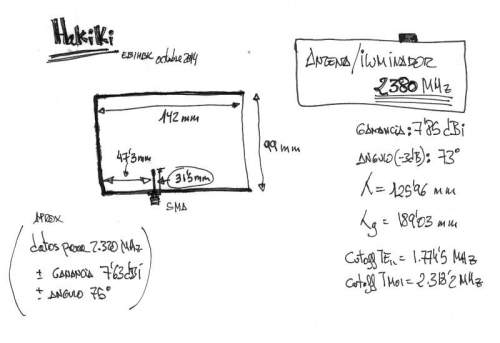 Hakiki
EB1HBK octubre 2014
ANTENA/ILUMINADOR
2380 MHz
142 mm
99 mm
47'3 mm
31'5 mm
SMA
GANANCIA: 7'86 dBi
ANGULO (-3dB): 73°
λ = 125'96 mm
λg = 189'03 mm
Cutoff TE11 = 1.774'5 MHz
Cutoff TM01 = 2.318'2 MHz
APROX
datos para 2.320 MHz
± GANANCIA 7'63 dBi
± ANGULO 76°